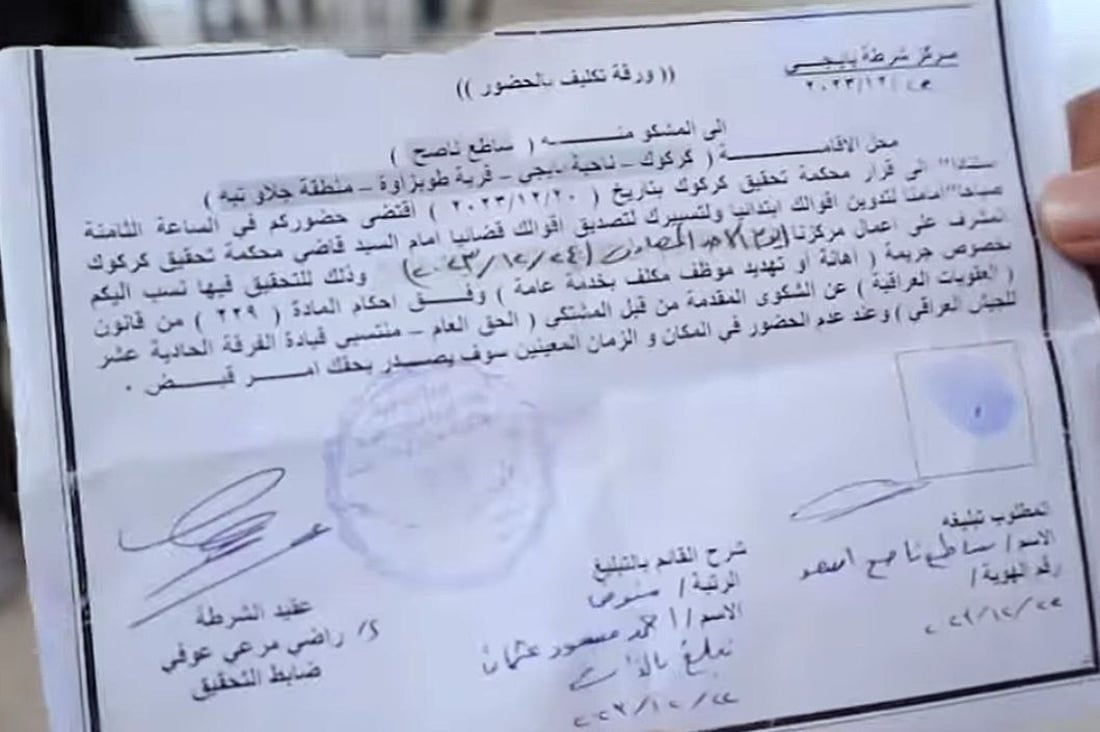 مركز شرطة يايجي
(( ورقة تكليف بالحضور ))
٢٠٢٣/١٢/
الى المشكو منـــه ( ساطع ناصح )
محل الاقامـــة ( كركوك – ناحية يايجي – قرية طوبزاوة – منطقة جلاو تبه )
ستنادا" الى قرار محكمة تحقيق كركوك بتاريخ ( ٢٠٢٣/١٢/٢٠ ) أقتضى حضوركم في الساعة الثامنة
صباحا" أمامنا لتدوين اقوالك ابتدائيا ولتسييرك لتصديق اقوالك قضائيا امام السيد قاضي محكمة تحقيق كركوك
المشرف على اعمال مركزنا (يوم الاحد المصادف ٢٠٢٣/١٢/٢٤) وذلك للتحقيق فيها نسب اليكم
بخصوص جريمة ( أهانة أو تهديد موظف مكلف بخدمة عامة ) وفـق احكام المادة ( ٢٢٩ ) من قانون
( العقوبات العراقية ) عن الشكوى المقدمة من قبل المشتكي ( الحق العام – منتسبي قيادة الفرقة الحادية عشر
للجيش العراقي ) وعند عدم الحضور في المكان و الزمان المعينين سوف يصـدر بحقك امـر قبـض .
المطلوب تبليغه
الاسم / ساطع ناصح
رقم الهوية /
شرح القائم بالتبليغ
الرتبة / مفوض
الاسم / احمد منصور عثمان
تبلغ بالذات
٢٠٢٣/١٢/٢٢
عقيد الشرطة
راضي مرعي عوفي
ضابط التحقيق